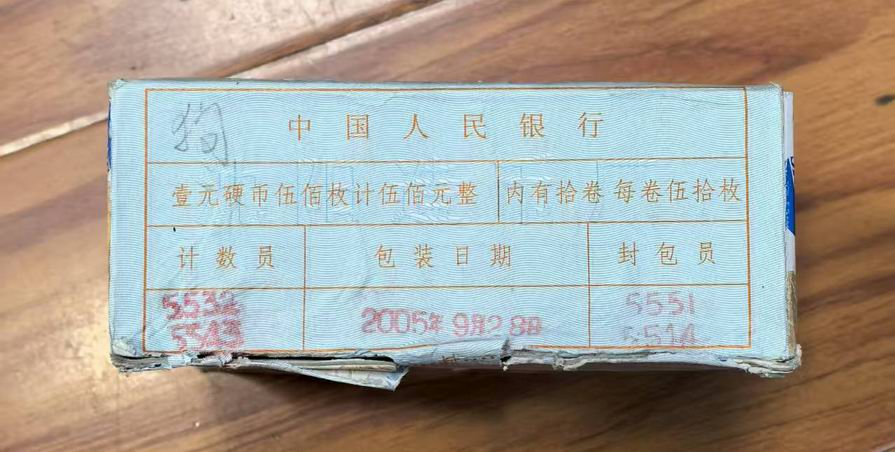 狗
中国人民银行
壹元硬币伍佰枚计伍佰元整 内有拾卷 每卷伍拾枚
计数员 包装日期 封包员
5532 2005年9月28日 5551
5543 5514